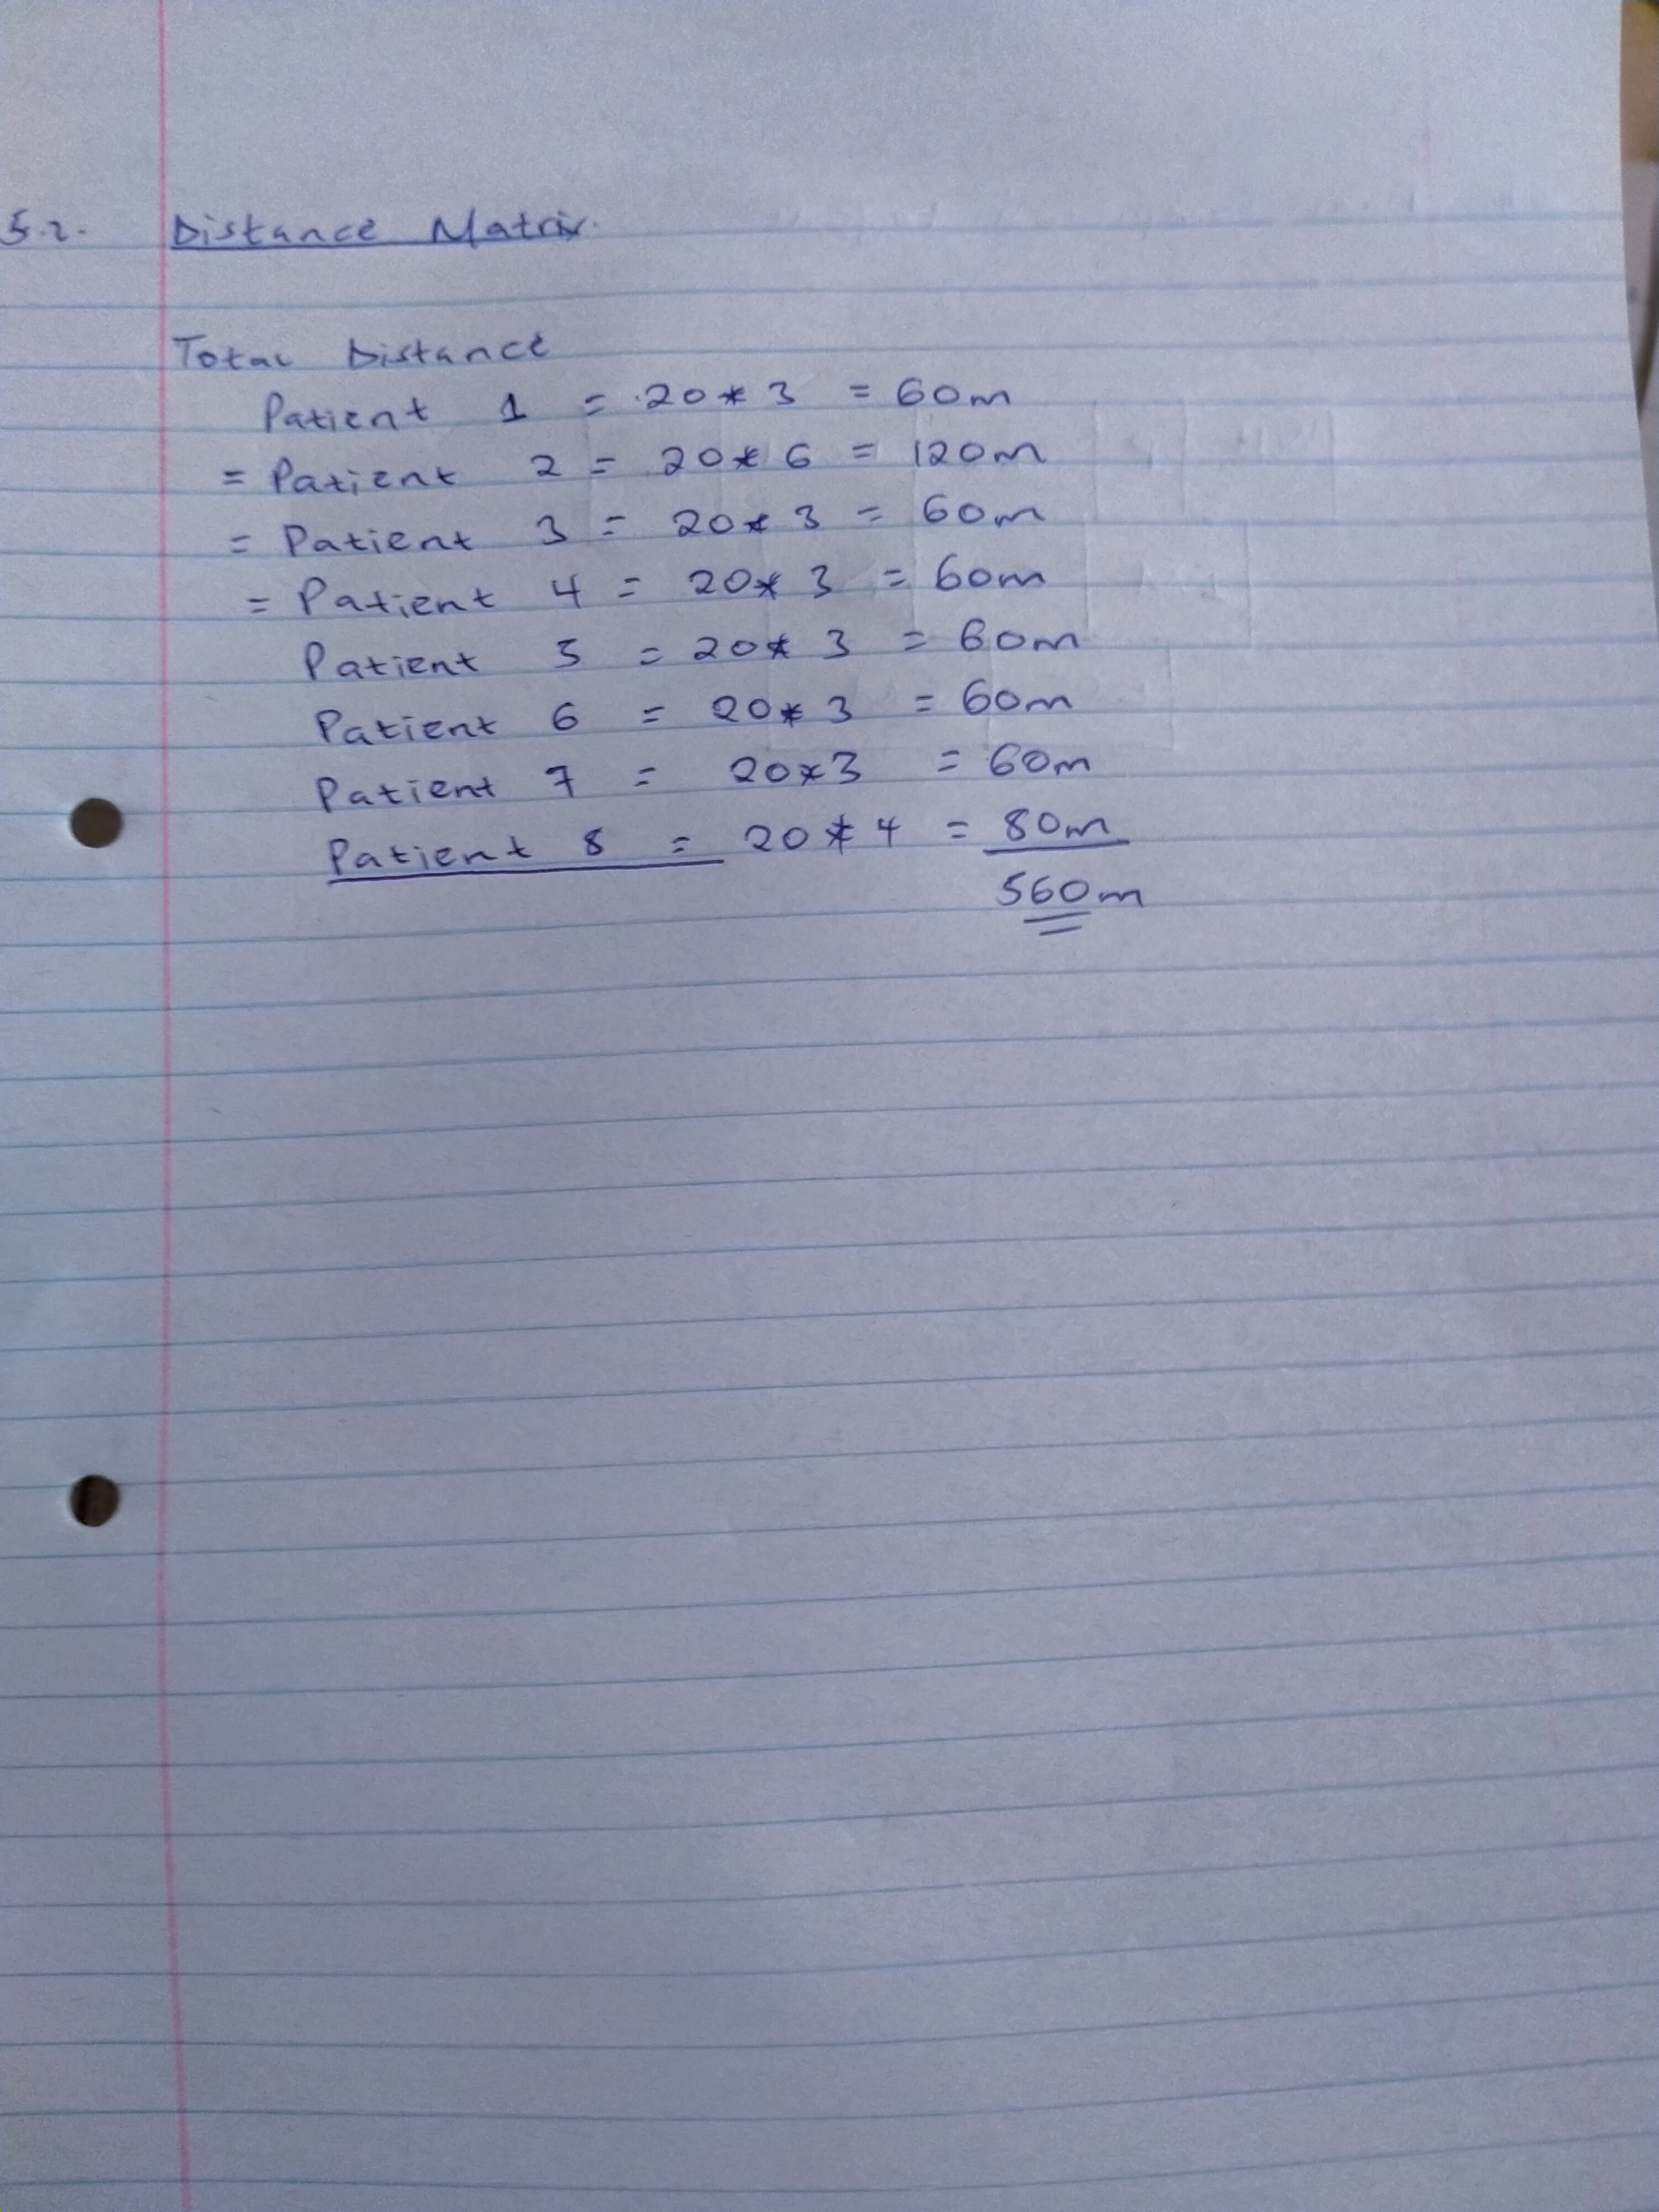 5.2. Distance Matrix.
Total Distance
Patient 1 = 20 * 3 = 60m
= Patient 2 = 20 * 6 = 120m
= Patient 3 = 20 * 3 = 60m
= Patient 4 = 20 * 3 = 60m
Patient 5 = 20 * 3 = 60m
Patient 6 = 20 * 3 = 60m
Patient 7 = 20 * 3 = 60m
Patient 8 = 20 * 4 = 80m
560m